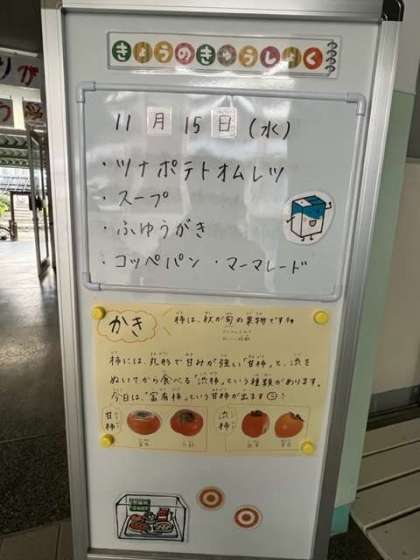 きょうのきゅうしょく
11月15日(水)
・ツナポテトオムレツ
・スープ
・ふゆうがき
・コッペパン ・マーマレード
かき
柿は、秋が旬の果物です。
柿には、丸形で甘みが強い「甘柿」と、渋を
ぬいてから食べる「渋柿」という種類があります。
今日は、「富有柿」という甘柿が出ます!
甘柿
渋柿